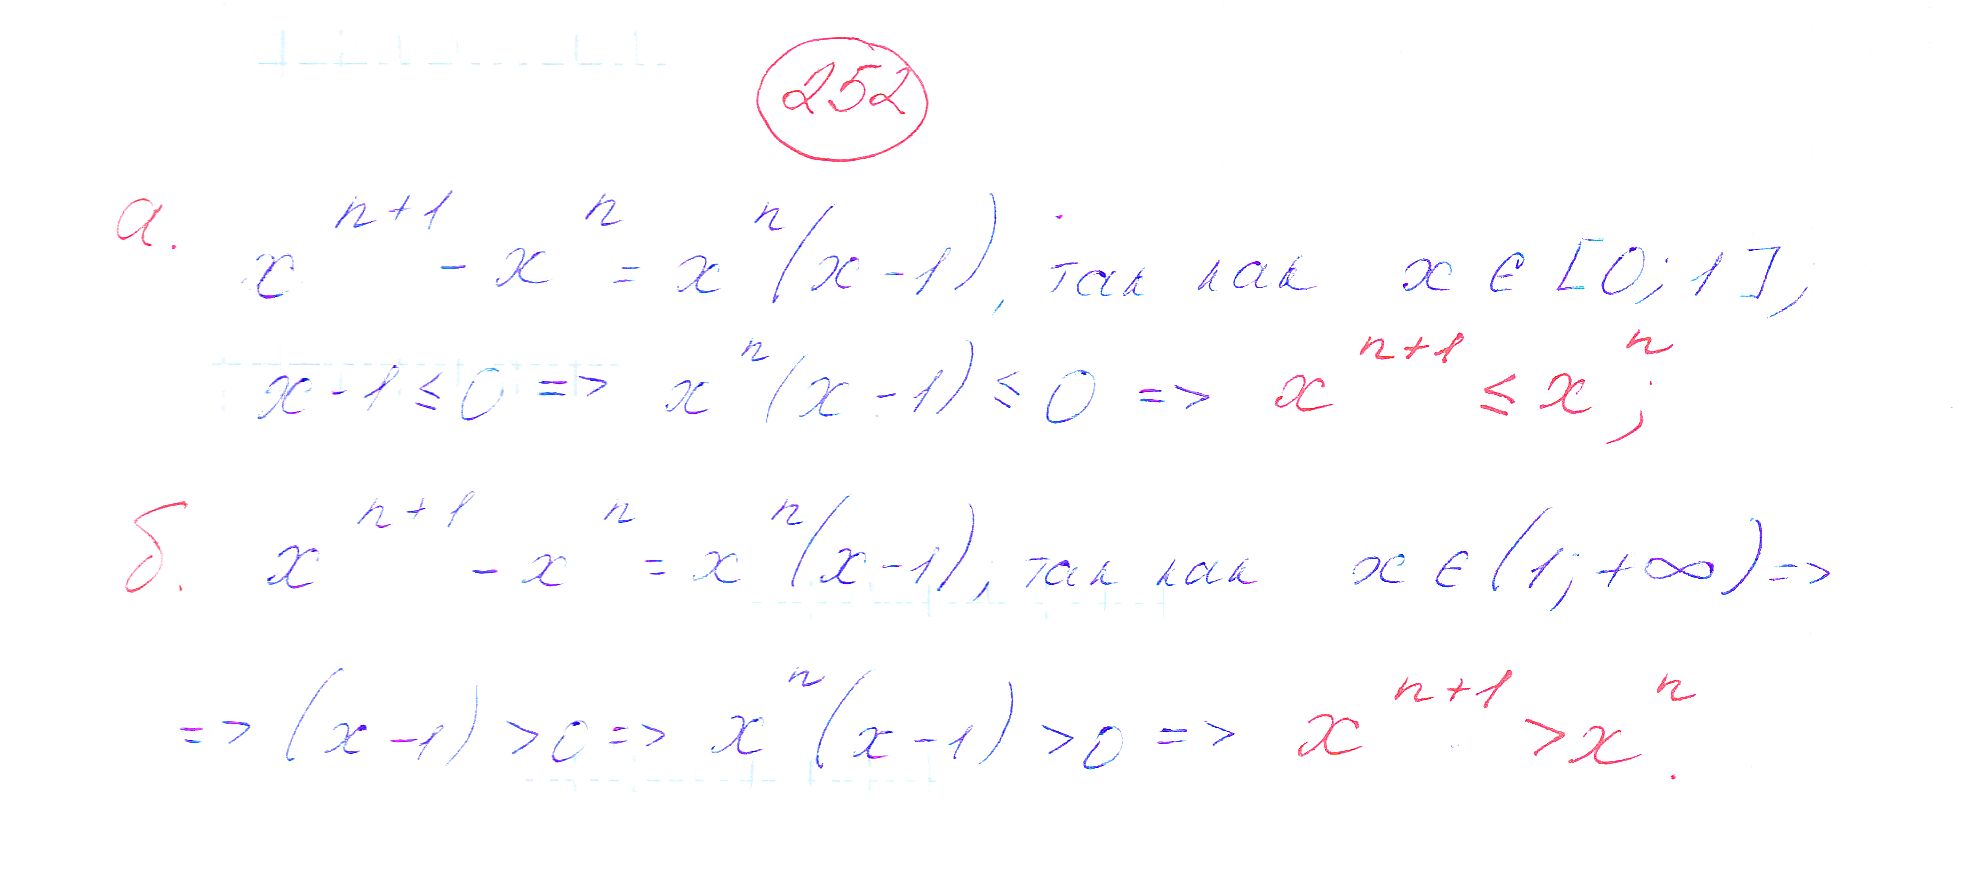 252
а. x^{n+1} - x^n = x^n(x-1), так как x ∈ [0; 1];
x-1 ≤ 0 => x^n(x-1) ≤ 0 => x^{n+1} ≤ x^n;
б. x^{n+1} - x^n = x^n(x-1), так как x ∈ (1; +∞) =>
=> (x-1) > 0 => x^n(x-1) > 0 => x^{n+1} > x^n.